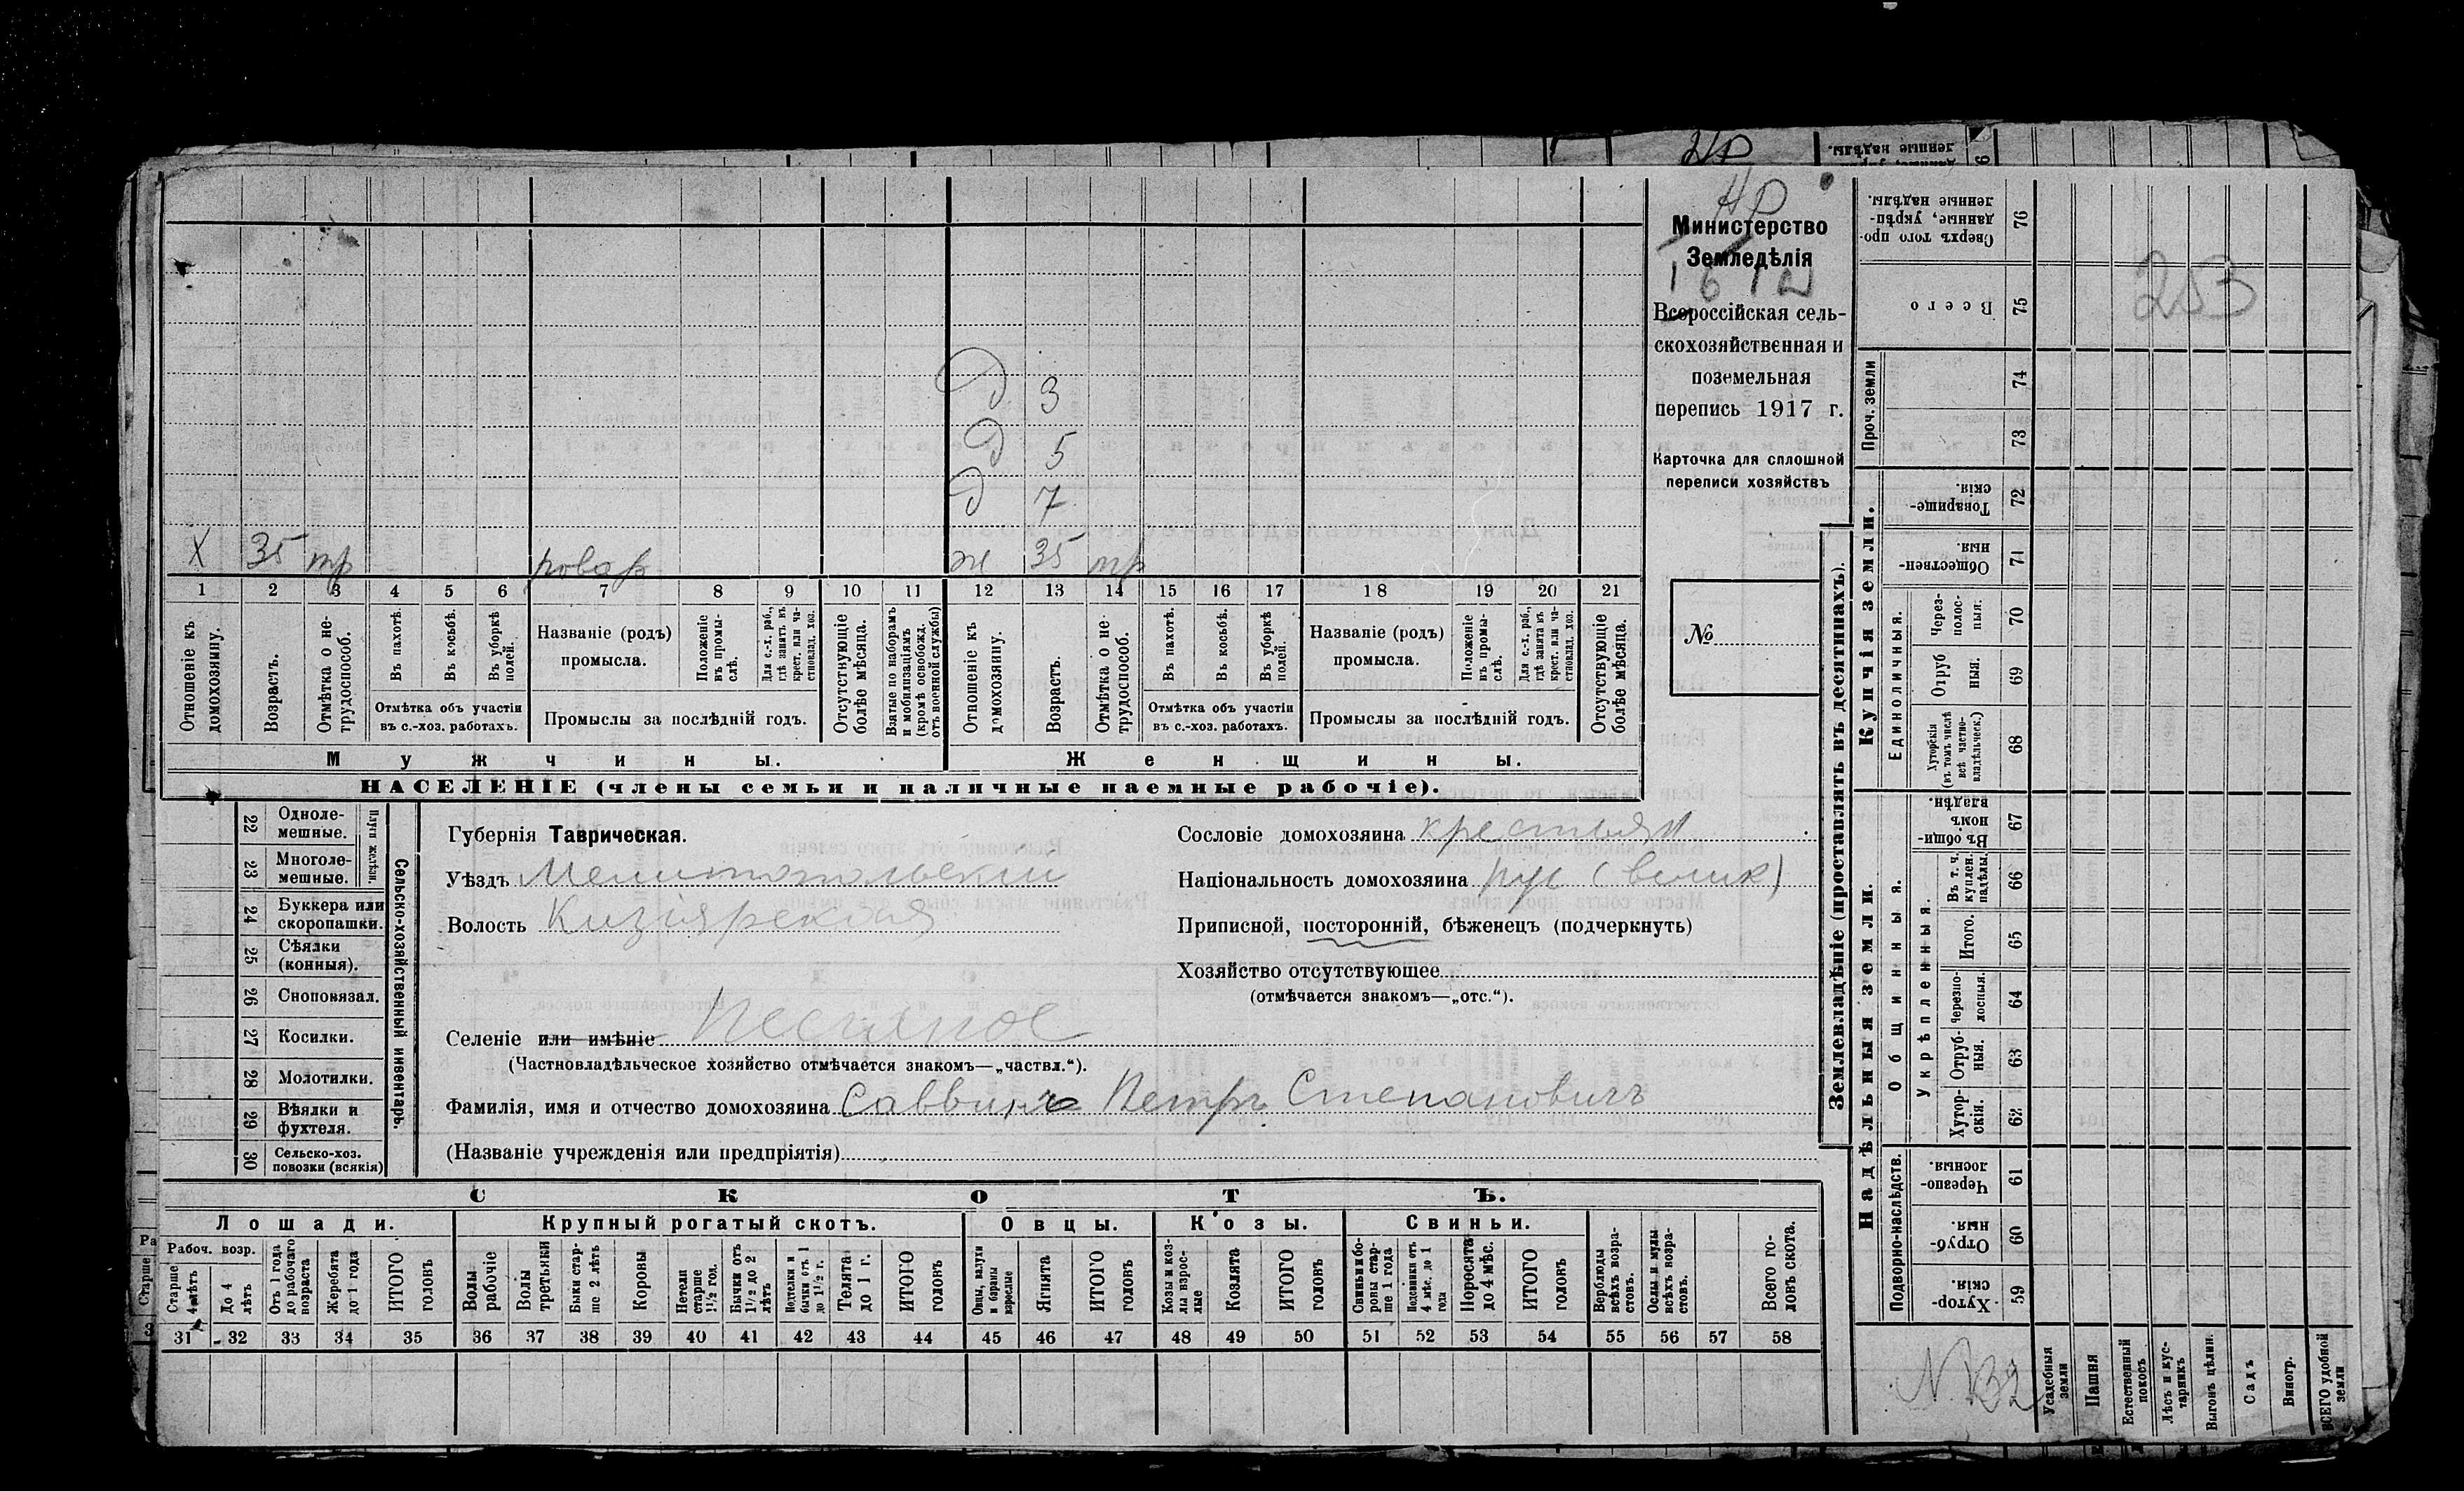 НР
Министерство
Земледѣлія
Всероссійская сель-
скохозяйственная и
поземельная
перепись 1917 г.
Карточка для сплошной
переписи хозяйствъ
№
Д 3
Д 5
Д 7
Х 35 тр
ж 35 тр
1 2 3 4 5 6 7 8 9 10 11 12 13 14 15 16 17 18 19 20 21
Отношеніе къ домохозяину.
Возрастъ.
Отмѣтка о не-трудоспособ.
Въ пахотѣ.
Въ косьбѣ.
Въ уборкѣ полей.
Отмѣтка объ участіи
въ с.-хоз. работахъ.
Названіе (родъ)
промысла.
Положеніе въ промы-слѣ.
Для с.-х. раб., гдѣ занятъ въ крест. или ча-стновлад. хоз.
Промыслы за послѣдній годъ.
Отсутствующіе болѣе мѣсяца.
Взятые по наборамъ и мобилизаціямъ (кромѣ освобожд. отъ военной службы)
Отношеніе къ домохозяину.
Возрастъ.
Отмѣтка о не-трудоспособ.
Въ пахотѣ.
Въ косьбѣ.
Въ уборкѣ полей.
Отмѣтка объ участіи
въ с.-хоз. работахъ.
Названіе (родъ)
промысла.
Положеніе въ промы-слѣ.
Для с.-х. раб., гдѣ занята въ крест. или ча-стновлад. хоз.
Промыслы за послѣдній годъ.
Отсутствующіе болѣе мѣсяца.
Мужчины.
Женщины.
НАСЕЛЕНІЕ (члены семьи и наличные наемные рабочіе).
22 Одноле-мешные.
23 Многоле-мешные.
Плуги желѣзн.
24 Буккера или скоропашки.
25 Сѣялки (конныя).
26 Сноповязал.
27 Косилки.
28 Молотилки.
29 Вѣялки и фухтеля.
30 Сельско-хоз. повозки (всякія)
Сельско-хозяйственный инвентарь.
Губернія Таврическая.
Уѣздъ Мелитопольскій
Волость Кизіярская
Сословіе домохозяина крестьян
Національность домохозяина рус (велик)
Приписной, посторонній, бѣженецъ (подчеркнуть)
Хозяйство отсутствующее
(отмѣчается знакомъ—„отс.“).
Селеніе или имѣніе Песчаное
(Частновладѣльческое хозяйство отмѣчается знакомъ—„частвл.“).
Фамилія, имя и отчество домохозяина Саввинъ Петръ Степановичъ
(Названіе учрежденія или предпріятія)
СКОТЪ.
Лошади.
Рабоч. возр.
31 Старше 4 лѣтъ
32 До 4 лѣтъ
33 Отъ 1 года до рабочаго возраста
34 Жеребята до 1 года
35 ИТОГО головъ
Крупный рогатый скотъ.
36 Волы рабочіе
37 Волы третьяки
38 Быки стар-ше 2 лѣтъ
39 Коровы
40 Нетели старше 1½ год.
41 Бычки отъ 1½ до 2 лѣтъ
42 Подтелки и бычки отъ 1 до 1½ г.
43 Телята до 1 г.
44 ИТОГО головъ
Овцы.
45 Овцы, валухи и бараны взрослые
46 Ягнята
47 ИТОГО головъ
Козы.
48 Козы и коз-лы взрос-лые
49 Козлята
50 ИТОГО головъ
Свиньи.
51 Свиньи и бо-ровы стар-ше 1 года
52 Подсвинки отъ 4 мѣс. до 1 года
53 Поросята до 4 мѣс.
54 ИТОГО головъ
55 Верблюды всѣхъ возра-стовъ.
56 Ослы и мулы всѣхъ возра-стовъ.
57
58 Всего го-ловъ скота.
Землевладѣніе (проставлять въ десятинахъ).
76 Сверхъ того про-данные, укрѣп-ленные надѣлы.
75 Всего
Проч. земли
74
73
Купчія земли.
72 Товарище-скія.
71 Обществен-ныя.
Единоличныя.
70 Через-полос-ныя.
69 Отруб ныя.
68 Хуторскія (въ томъ числѣ всѣ частно-владѣльческ.)
Надѣльныя земли.
Общинныя.
67 Въ общи-номъ владѣн.
Укрѣпленныя.
66 Въ т. ч. куплен. надѣлы.
65 Итого.
64 Черезпо-лосныя.
63 Отруб-ныя.
62 Хутор-скія.
Подворно-наслѣдств.
61 Черезпо-лосныя.
60 Отруб-ныя.
59 Хутор-скія.
Усадебныя земли
Пашня
Естественный покосъ
Лѣсъ и кус-тарникъ
Выгонъ цѣлин.
Садъ
Виногр.
ВСЕГО удобной земли
253
N 132